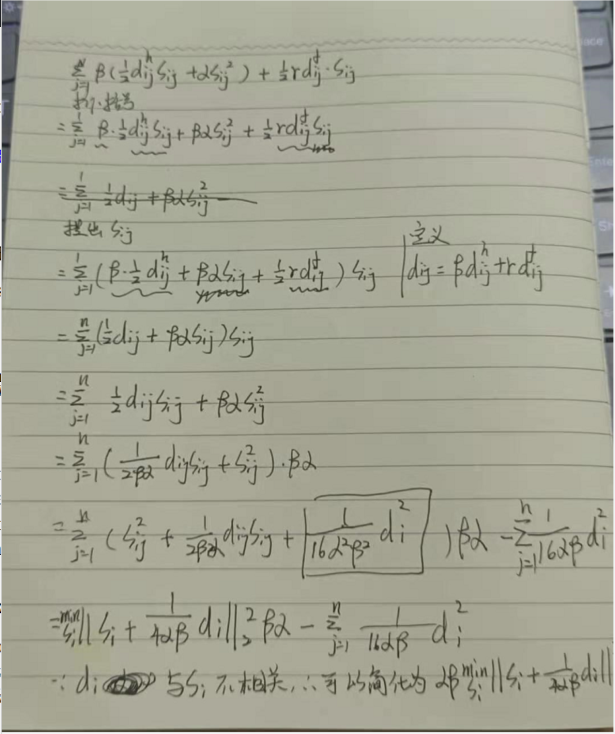 ∑_{j=1}^{n} β(½d_{ij}^{h}s_{ij} + αs_{ij}²) + ½rd_{ij}^{f}·s_{ij}
拆括号
= ∑_{j=1}^{1} β·½d_{ij}^{h}s_{ij} + βαs_{ij}² + ½rd_{ij}^{f}s_{ij}
= ∑_{j=1}^{1} ½d_{ij} + βαs_{ij}²
提出 s_{ij}
= ∑_{j=1}^{1} (β·½d_{ij}^{h} + βαs_{ij} + ½rd_{ij}^{f}) s_{ij}
定义
d_{ij} = βd_{ij}^{h} + rd_{ij}^{f}
= ∑_{j=1}^{n} (½d_{ij} + βαs_{ij})s_{ij}
= ∑_{j=1}^{n} ½d_{ij}s_{ij} + βαs_{ij}²
= ∑_{j=1}^{n} (\frac{1}{2βα} d_{ij}s_{ij} + s_{ij}²)·βα
= ∑_{j=1}^{n} (s_{ij}² + \frac{1}{2βα} d_{ij}s_{ij} + \frac{1}{16α²β²} d_{i}²) βα − ∑_{j=1}^{n} \frac{1}{16αβ} d_{i}²
= min_{s_i} ||s_i + \frac{1}{4αβ} d_i||_2^2 βα − ∑_{j=1}^{n} \frac{1}{16αβ} d_{i}²
∵ d_i 与 s_i 不相关, ∴可以简化为 αβ min_{s_i} ||s_i + \frac{1}{4αβ} d_i||